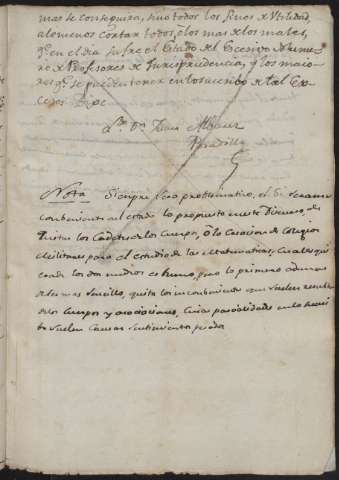 mas se conseguira, sino todos los fines de Utilidad,
alomenos cortar todos, o los mas de los males,
qe. en el dia sufre el Estado del excesivo Nume-
ro de Profesores de Jurisprudencia, y los maio-
res qe. se pueden temer en lo sucesivo de tal Ex-
ceso.
Dn. Juan
Nota Siempre sera problematico, el si sera mas
combeniente al estado lo propuesto en este Discurso, de
quitar los Cadetes de los Cuerpos, o la Creacion de Colegios
Militares para el estudio de las Matematicas, Cualesqui
era de los dos medios es bueno, pero lo primero ademas
de ser mas sencillo, quita los incombenientes que suelen
de los Cuerpos y asociaciones, cuias parcialidades en lo
suelen Causar sentimientos